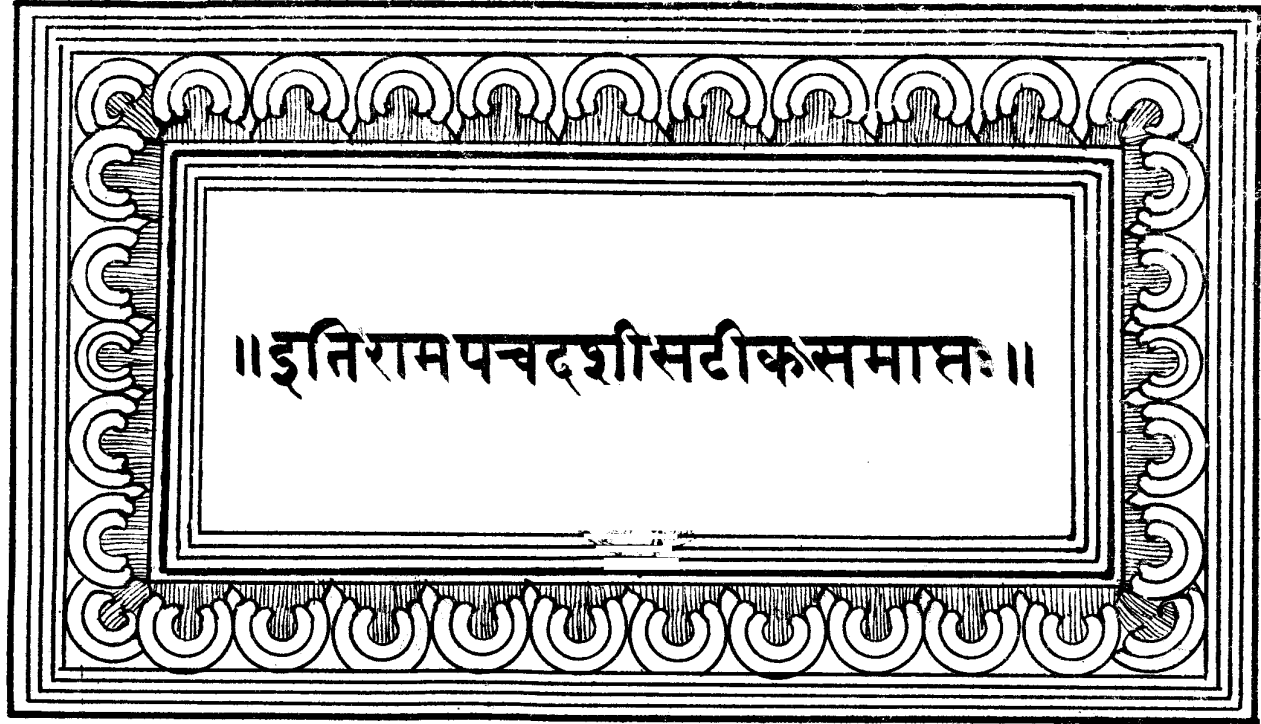 ॥इतिरामपचदशीसटीकसमाप्तः॥